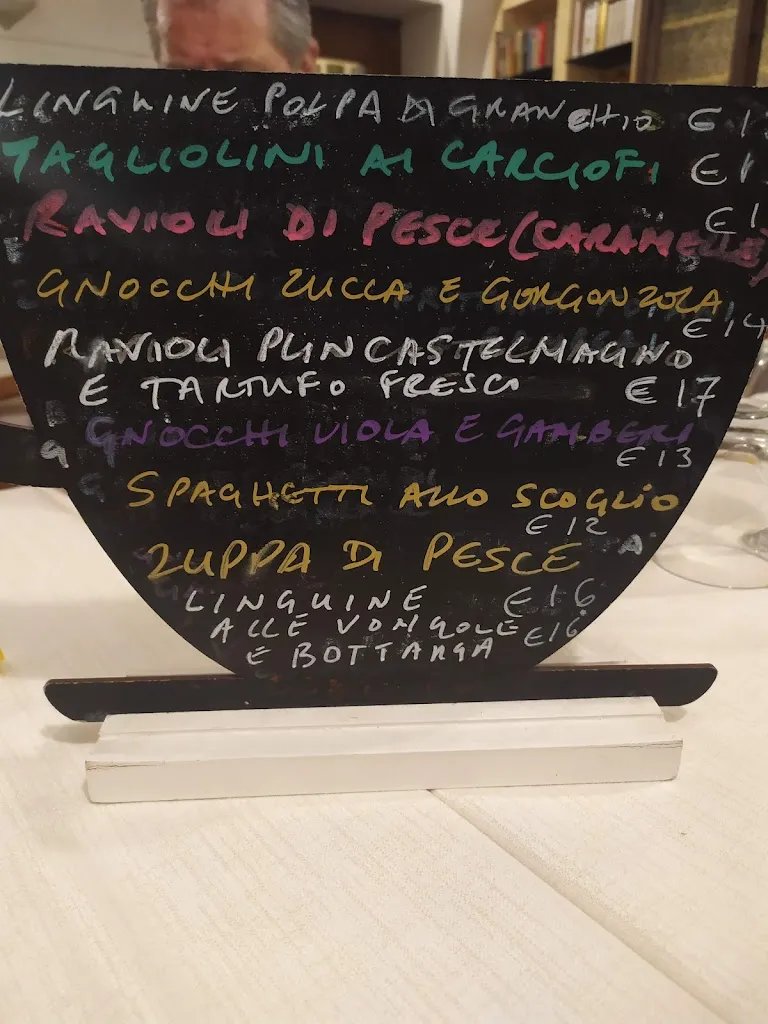 LINGUINE POLPA DI GRANCHIO € 1
TAGLIOLINI AI CARCIOFI € 1
RAVIOLI DI PESCE (CARAMELLE) € 1
GNOCCHI ZUCCA E GORGONZOLA
€ 14
RAVIOLI PLIN CASTELMAGNO
E TARTUFO FRESCO € 17
GNOCCHI VIOLA E GAMBERI
€ 13
SPAGHETTI ALLO SCOGLIO
€ 12
ZUPPA DI PESCE
LINGUINE € 16
ALLE VONGOLE € 16
E BOTTARGA